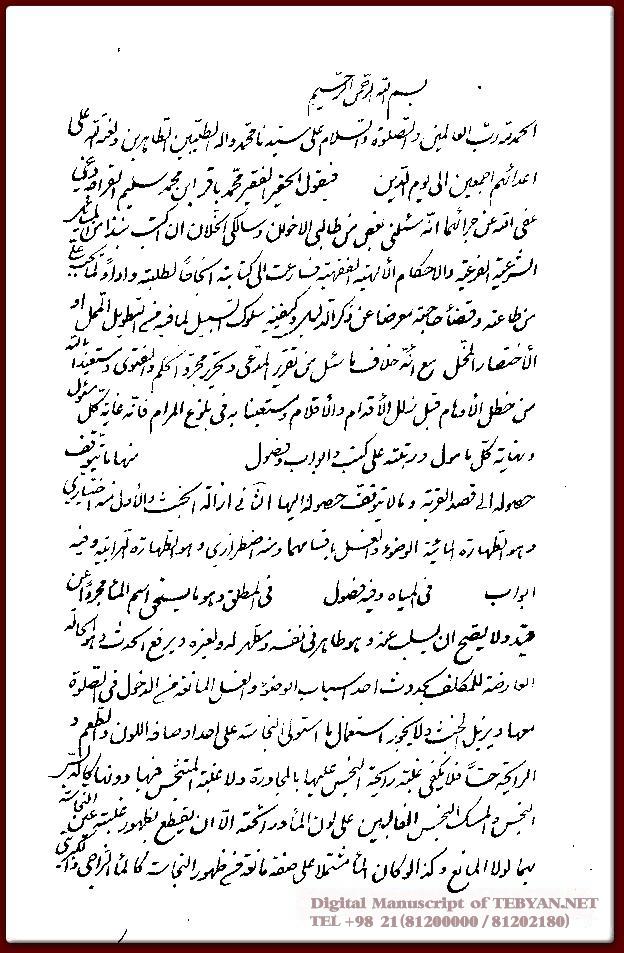 بسم الله الرحمن الرحیم
الحمد لله رب العالمین والصلوة والسلام علی سیدنا محمد واله الطیبین الطاهرین ولعنة الله علی
اعدائهم اجمعین الی یوم الدین فیقول الحقیر الفقیر محمد باقر ابن محمد سلیم القراجه داغی
عفی الله عن جرائمهما انه سئلنی بعض من طالبی الاخوان وسالکی الخلان ان اکتب نبذا من المسائل
الشرعیة الفرعیة والاحکام الالهیة الفقهیة فسارعت الی کتابته انجاحا لطلبته واداء لما یجب علی
من طاعته وقضاء حاجته معرضا عن ذکر الدلیل وکیفیة سلوک السبیل لما فیه من التطویل الممل او
الاختصار المخل مع انه خلاف ما سئل من تقریر المدعی وتحریر مجرد الحکم والفتوی مستعیذا بالله
من خطل الاوهام قبل زلل الاقدام والاقلام ومستعینا به فی بلوغ المرام فانه غایة کل مسؤل
ونهایة کل مامول ورتبته علی کتب وابواب وفصول منها ما یتوقف
حصوله الی قصد القربة وما لا یتوقف حصوله الیها فی ازالة الخبث والاول منه اختیاری
وهو الطهارة المائیة الوضوء والغسل باقسامهما ومنه اضطراری وهو الطهارة الترابیة وفیه
ابواب فی المیاه وفیه فصول فی المطلق وهو ما یستحق اسم الماء مجردا عن
قید ولا یصح ان یسلب عنه وهو طاهر فی نفسه ومطهر له ولغیره ویرفع الحدث وهو الحالة
العارضة للمکلف بحدوث احد اسباب الوضوء والغسل المانعة من الدخول فی الصلوة
معها ویزیل الخبث ولا یجوز استعمال ما استولی النجاسة علی احد اوصافه اللون والطعم و
الرائحة حسا فلا یکفی غلبة رائحة النجس علیها بالمجاورة ولا غلبة المتنجس منها دونها کالدبس
النجس والمسک النجس الغالبین علی لون الماء ورائحته الا ان یقطع بظهور غلبة عین النجاسة
بهما لولا المانع وکذا لو کان الماء مشتملا علی صفة مانعة من ظهور النجاسة کالماء الزاجی والکبریتی
Digital Manuscript of TEBYAN.NET
TEL +98 21(81200000 / 81202180)